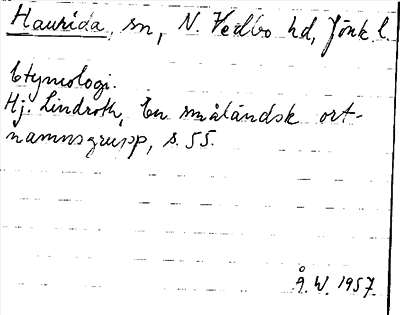 Haurida, sn, N. Vedbo hd, Jönk l.
Etymologi.
Hj. Lindroth, En småländsk ort-
namnsgrupp, s. 55.
Å. W. 1957.